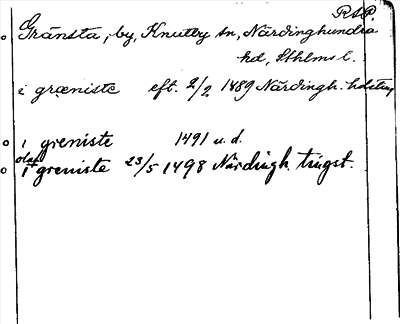 RAP.
Gränsta, by, Knutby sn, Närdinghundra
hd, Sthlms l.
i græniste eft. 2/2 1489 Närdingh. hdsting
i greniste 1491 u.d.
olaf
i greniste 23/5 1498 Närdingh. tingst.